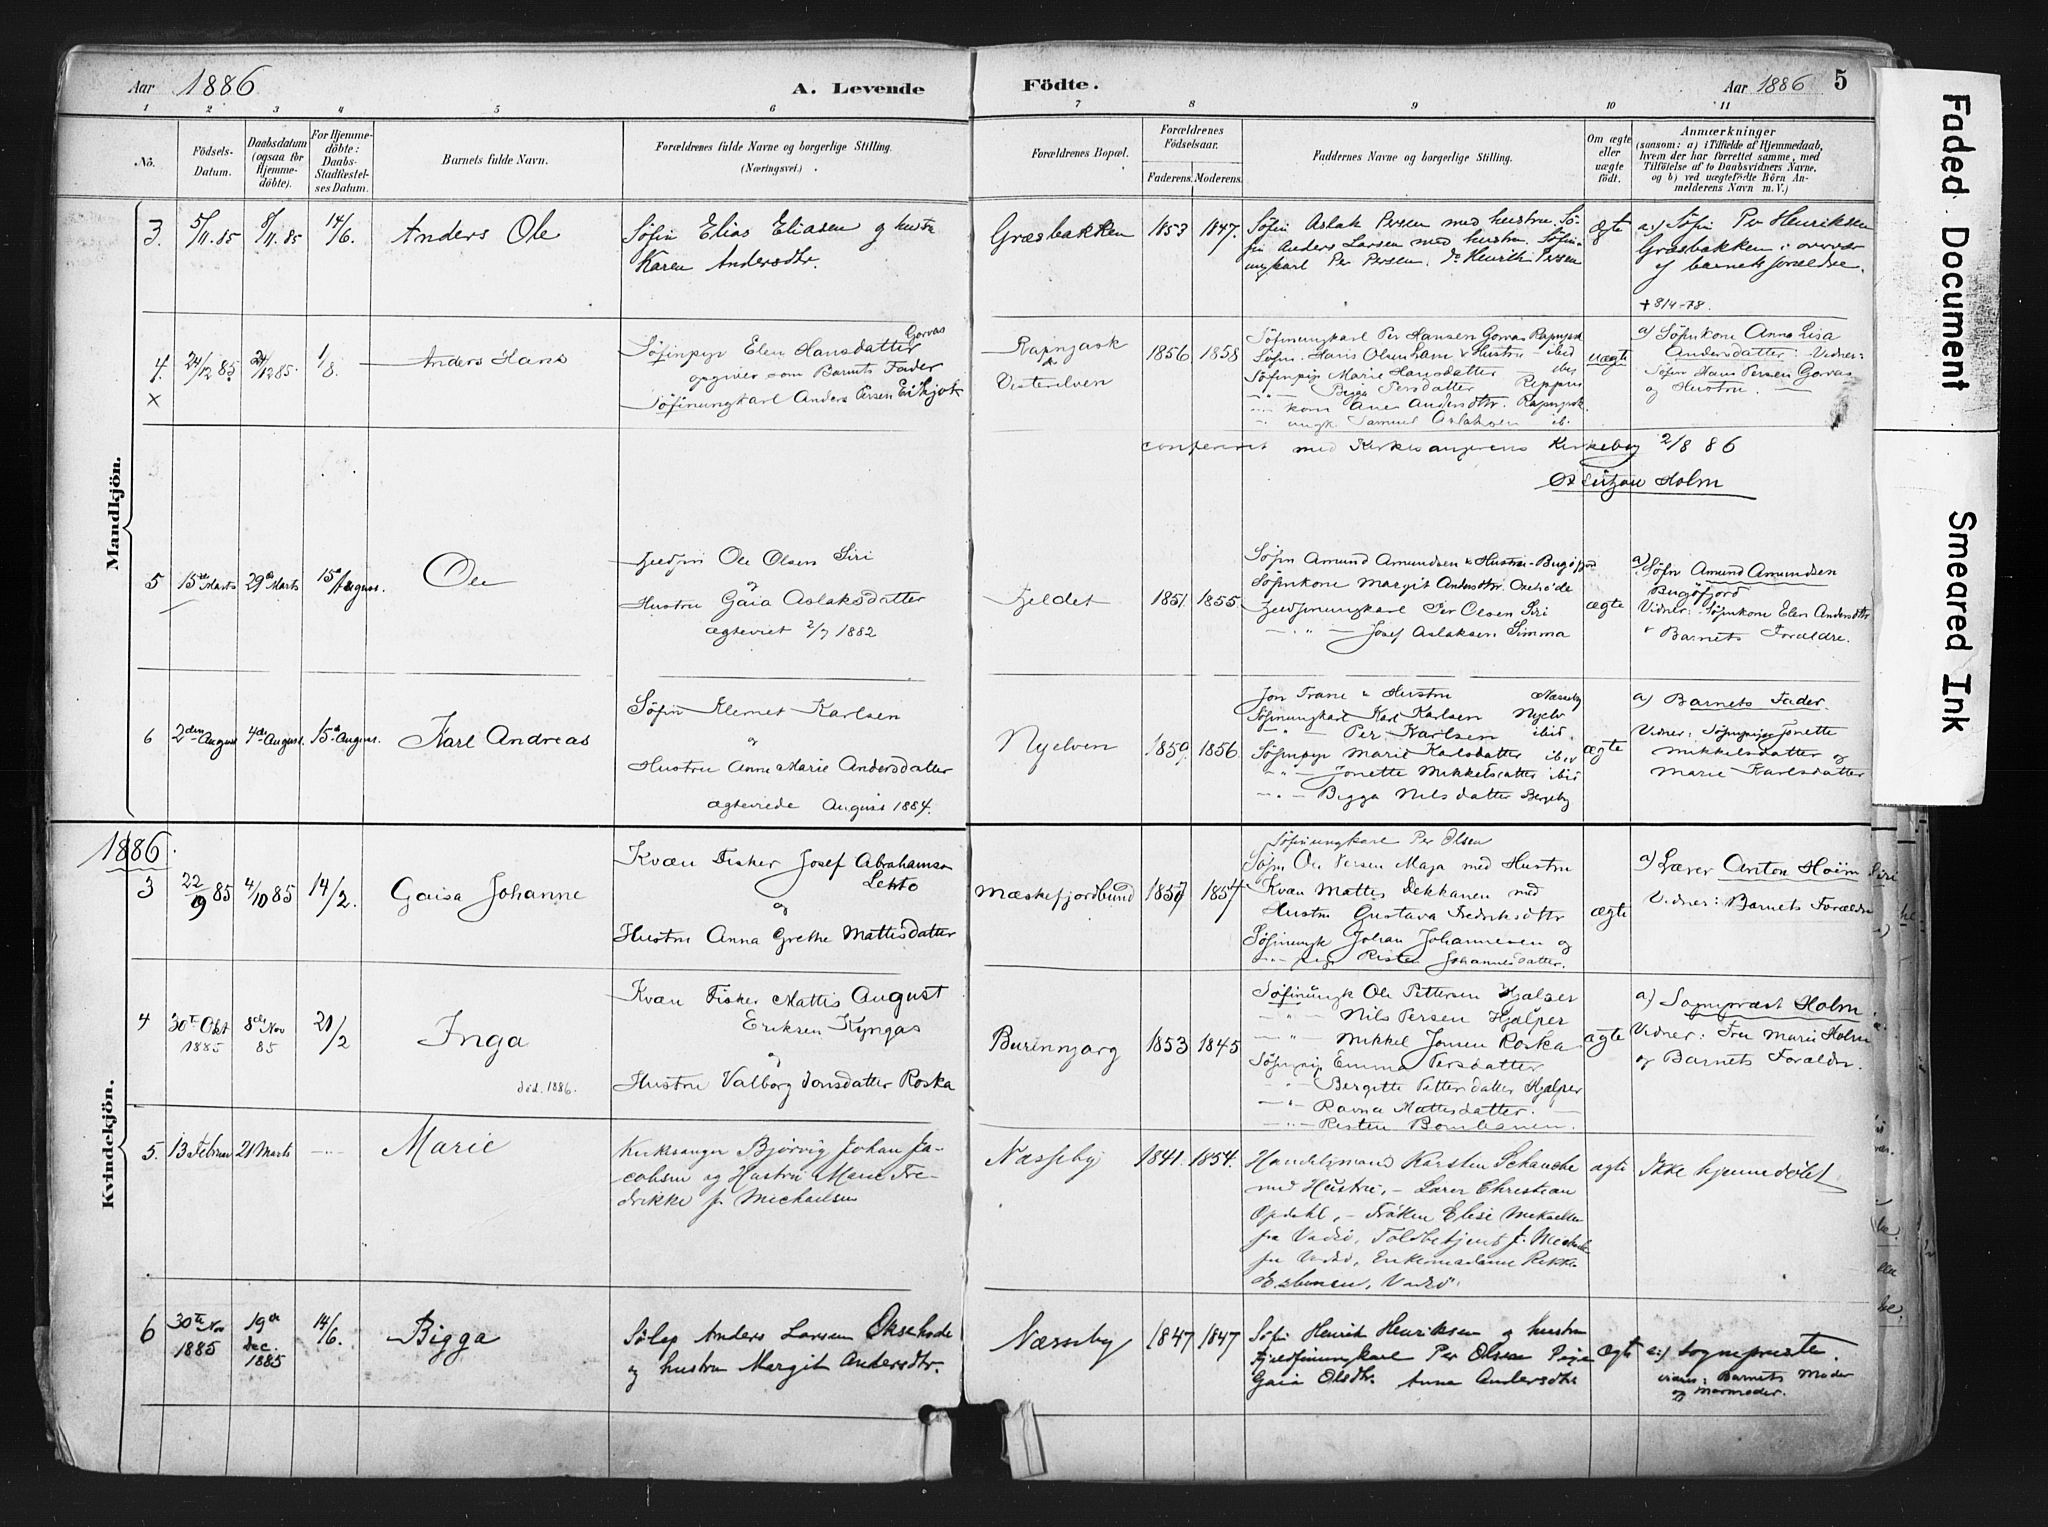 Aar 1886 A. Levende Födte. Aar 1886 5
1 2 3 4 5 6 7 8 9 10 11
No.
Födsels-Datum.
Daabsdatum (ogsaa for Hjemmedöbte).
For Hjemmedöbte: Daabs-Stadfæstelses Datum.
Barnets fulde Navn.
Forældrenes fulde Navne og borgerlige Stilling.
(Næringsvei.)
Forældrenes Bopæl.
Forældrenes Födselsaar.
Faderens. Moderens.
Faddernes Navne og borgerlige Stilling.
Om ægte eller uægte födt.
Anmærkninger
(saasom: a) i Tilfælde af Hjemmedaab, hvem der har forrettet samme, med Tilföielse af to Daabsvidners Navne, og b) ved uægtefödte Börn Anmelderens Navn m. V.)
Mandkjön.
3. 5/11.85 8/11.85 14/6. Anders Ole
Söfin Elias Eliasen og hustr
Karen Andersdtr.
Græsbakken 1853 1847.
Söfin Aslak Persen med hustru Sö-
fin Anders Larsen med hustru. Söfin-
ungkarl Per Persen. do Henrik Persen
ægte
a.) Söfin Per Henriksen
Græsbakken i overvær
af barnets forældre.
+ 814-78
4. 24/12 85. 24/12 85. 1/8. Anders Hans
×
Söfinpige Elen Hansdatter Gorvas
opgiver som Barnets Fader
Söfinungkarl Anders Persen
Vesterelven
1856 1858
Söfinungkarl Per Hansen Gorvas
Söfin Hans Olsen & Hustru ibid
Söfinpige Marie Hansdatter ibid
Bigga Persdatter
kone Ane Andersdtr.
ungk. Samuel Aslaksen ib.
uægte
a) Söfinkone Anna Lisa
Andersdatter: Vidner:
Söfin Hans Persen Gorvas
og Hustru.
confereret med Kirkesangerens Kirkebog 2/8 86
Holm
5 15de Marts 29de Marts 15de August. Ole
Fjeldfin Ole Olsen Siri
og
Hustru Gaia Aslaksdatter
ægteviet 2/7 1882
Fjeldet 1851. 1855.
Söfin Amund Amundsen & Hustru - Bugöfjord
Söfinkone Margit Andersdtr.
Fjeldfinungkarl Per Olsen Siri
— " — Josef Aslaksen Simma
ægte
a) Söfin Amund Amundsen
Bugöfjord
Vidner: Söfinkone Elen Andersdtr
& Barnets Forældre.
6 2den August 4de August. 15de August. Karl Andreas
Söfin Klemet Karlsen
og
Hustru Anne Marie Andersdatter
ægteviede August 1884.
Nyelven 1859. 1856.
Jon Trane & Hustru Næsseby
Söfinungkarl Karl Karlsen Nyelv
Per Karlsen ibid.
Söfinpige Marie Karlsdatter ibid
— " — Jonette Mikkelsdatter ibid
— " — Bigga Nilsdatter Bergeby
ægte
a) Barnets Fader.
Vidner: Söfinpiger Jonette
Mikkelsdatter og
Marie Karlsdatter
1886.
Kvindekjön.
3 22/9 85 4/10 85 14/2. Gaisa Johanne
Kvæn Fisker Josef Abrahamsen
Lehto
og
Hustru Anna Grethe Mattisdatter
Mæskefjordbund 1857 1854
Söfinungkarl Per Olsen
Söfin Ole Persen Maja med Hustru
Kvæn Mattis Dekkanen med
Hustru Gustava Fredriksdtr
Söfinungk Johan Johannesen og
— " — pige Risten Johannesdatter.
ægte
a) Lærer Anton Hoem
Vidner: Barnets Forældre
4 30te Okt 1885 8de Nov 85 21/2 Inga
död. 1886.
Kvæn Fisker Mattis August
Eriksen Kyngæs
og
Hustru Valborg Jonsdatter Roska
Burinnjarg 1853 1845
Söfinungk Ole Pettersen Hjalper
— " — Nils Persen Hjalper
— " — Mikkel Jonsen Roska
Söfinpige Emma Persdatter
— " — Bergitte Pettersdatter Hjalper
— " — Ravna Mattisdatter. —
— " — Risten Bombanen.
ægte
a) Sognepræst Holm.
Vidner: Fru Marie Holm
og Barnets Forældre.
5. 13 Februar 21 Marts — Marie
Kirkesanger Björvig Johan Ja-
cobsen og Hustru Marie Fre-
drikke f. Michaelsen
Næsseby 1841. 1854.
Handelsmand Karsten Schanche
med Hustru, - Lærer Christian
Opdahl, - Fröken Elise Mikaelsen
fra Vadsö, Toldbetjent J.
fra Vadsö, Enkemadame Rikke
Esbensen, Vadsö.
ægte
Ikke hjemmedöbt
6 30te Nov 1885 19de Dec. 1885 14/6. Bigga
Anders Larsen Oksehode
og hustru Margit Andersdtr.
Næsseby 1847 1847
Söfin Henrik Henriksen og hustru
Fjeldfinungkarl Per Olsen Pige
Gaia Olsdtr. Anna Andersdtr
ægte
a:) sognepreste.
vidner: Barnets Moder
og Mormoder.
Faded Document
Smeared Ink